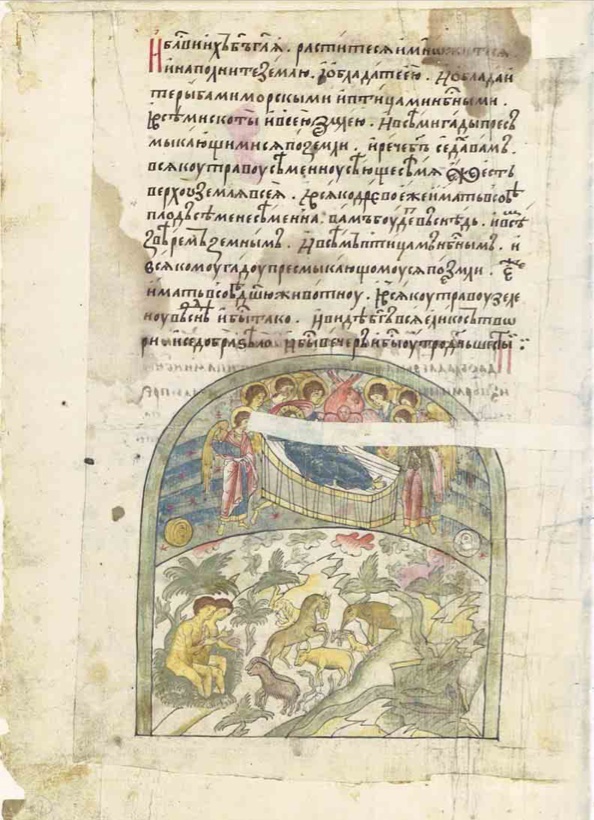 И бл҃ви ихъ бг҃ъ гл҃ѧ . раститесѧ и мн
и наполните землю . и ѡбладаите ею . и ѡбладаи
те рыбами морскыми и птицами нб҃ными .
и всѣми скоты и всею землею . и всѣми гады пресъ
мыкающимисѧ по земли . и рече бг҃ъ се дахъ вамъ .
всѧкоу травоу сѣменноу сѣющее сѣмѧ еже есть
верхоу землѧ всеѧ . и всѧко древо еже имать в собѣ
плодъ сѣмене сѣменна . вамъ боудеть въ снѣдь . и всѣ
звѣремъ земнымъ . и всѣмъ птицамъ нб҃нымъ . и
всѧкомоу гадоу пресмыкающомоусѧ по земли . еже
имать в собѣ дш҃ю животноу . и всѧкоу травоу зеле
ноу въ снѣдь и бы тако . и видѣ бг҃ъ всѧ елико сътво
ри и се добра ѕѣло . и бы вечеръ и бы оутро дн҃ь шестыи :